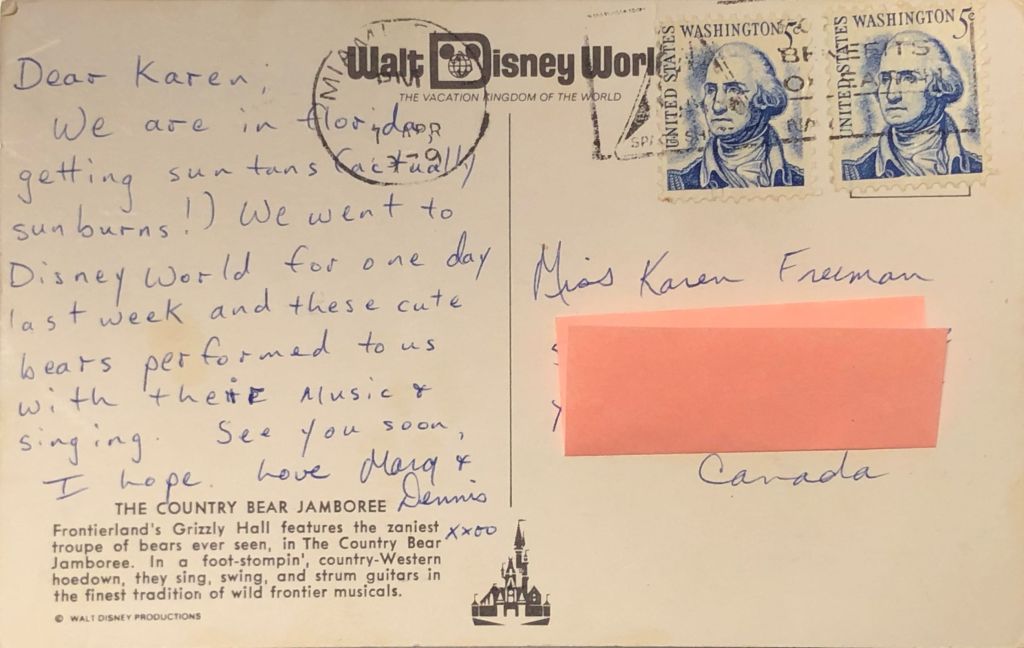 Walt Disney World
THE VACATION KINGDOM OF THE WORLD
MIAMI
APR
UNITED STATES
WASHINGTON 5¢
UNITED STATES
WASHINGTON 5¢
Dear Karen,
We are in Florida
getting sun tans (actually
sunburns!) We went to
Disney World for one day
last week and these cute
bears performed to us
with their music &
singing. See you soon,
I hope. Love Marg &
Dennis
xxoo
Miss Karen Freeman
Canada
THE COUNTRY BEAR JAMBOREE
Frontierland's Grizzly Hall features the zaniest
troupe of bears ever seen, in The Country Bear
Jamboree. In a foot-stompin', country-Western
hoedown, they sing, swing, and strum guitars in
the finest tradition of wild frontier musicals.
© WALT DISNEY PRODUCTIONS